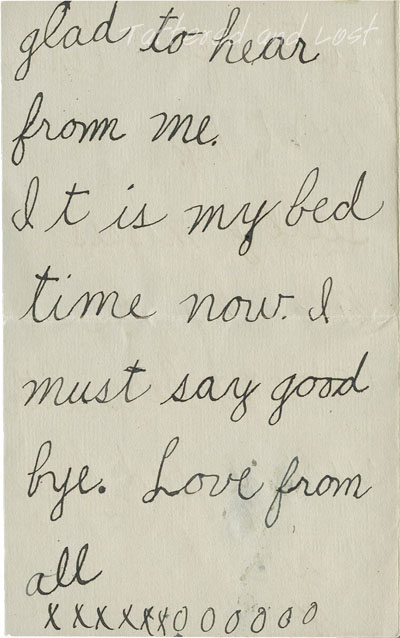 glad to hear
Tattered and Lost
from me.
It is my bed
time now. I
must say good
bye. Love from
all
xxxxxxxoooooo